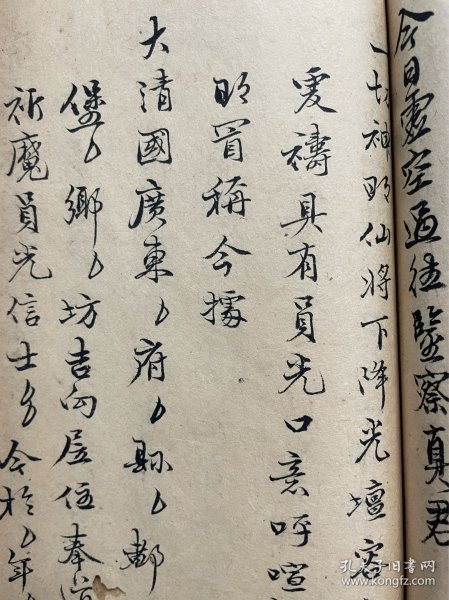 今日虛空過往鑒察真君
一切神明仙将下降光壇容
爰禱具有員光口意呼喧
明賞稱今據
大清國廣東〻府〻縣〻都
堡〻鄉〻坊吉向居住奉道
祈魔員光信士〻今於〻年
孔夫子旧书网
kongfz.com